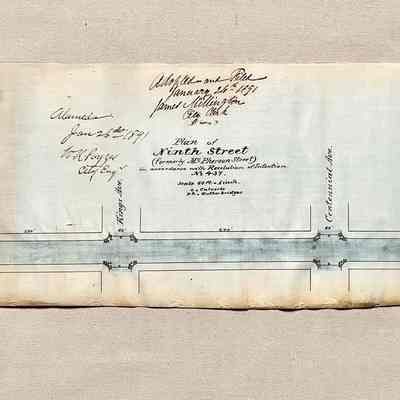 Adopted and Filed
January 26th 1891
James Millington
City Clerk
Alameda
Jan 26th 1891
City Engr
Plan of
Ninth Street
(formerly McPherson Street)
in accordance with Resolution of Intention
No 437.
Scale 60 ft = 1 inch.
= Culverts
= Gutter bridges
Kings Ave.
Centennial Ave.